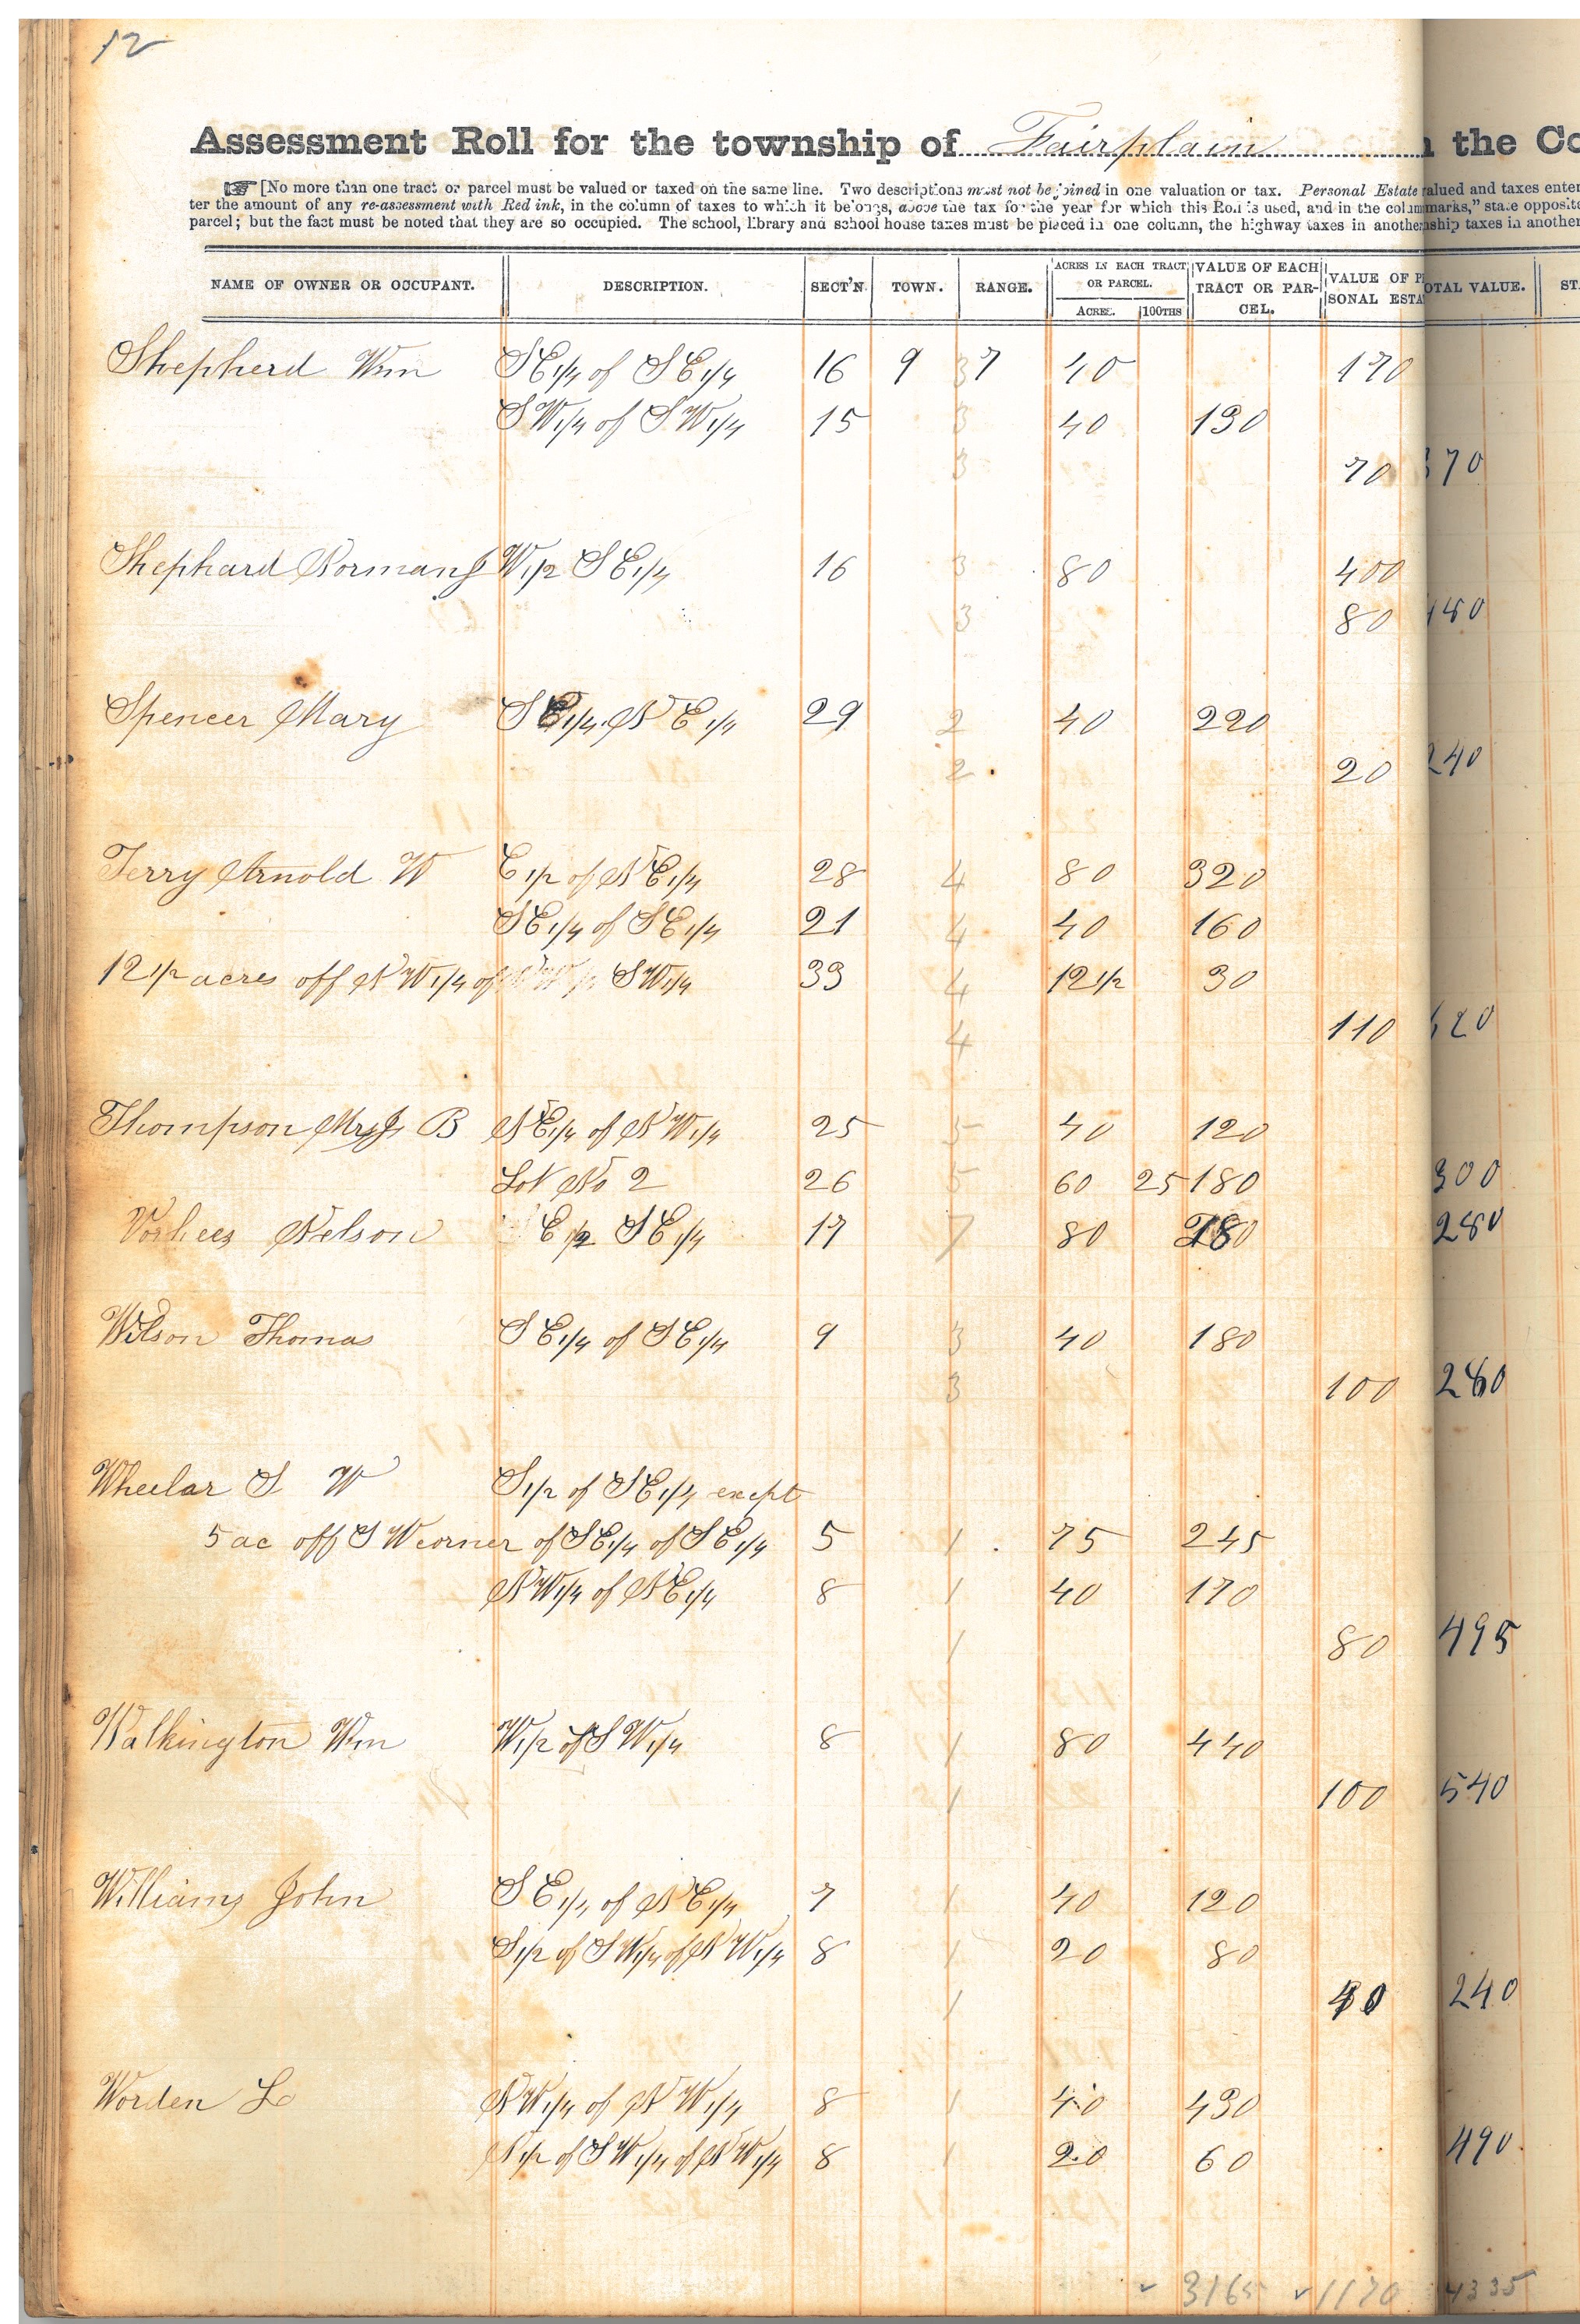 12
Assessment Roll for the township of Fairplain the Co
[No more than one tract or parcel must be valued or taxed on the same line. Two descriptions must not be joined in one valuation or tax. Personal Estate alued and taxes enter
ter the amount of any re-assessment with Red ink, in the column of taxes to which it belongs, above the tax for the year for which this Roll is used, and in the colum marks," state opposite
parcel; but the fact must be noted that they are so occupied. The school, library and school house taxes must be placed in one column, the highway taxes in another ship taxes in another
NAME OF OWNER OR OCCUPANT. DESCRIPTION. SECT'N. TOWN. RANGE. ACRES IN EACH TRACT OR PARCEL. ACRES. 100THS VALUE OF EACH TRACT OR PARCEL. VALUE OF P SONAL ESTA OTAL VALUE. ST
Shepherd Wm SE1/4 of SE1/4 16 9 3 7 40 170
SW1/4 of SW1/4 15 3 40 130
3 70 370
Shephard Norman J W1/2 SE1/4 16 3 80 400
3 80 480
Spencer Mary SE1/4 NE1/4 29 2 40 220
2 20 240
Terry Arnold W E1/2 of NE1/4 28 4 80 320
SE1/4 of SE1/4 21 4 40 160
12 1/2 acres off NW1/4 of SW1/4 33 4 12 1/2 30
4 110 620
Thompson Mrs J B NE1/4 of NW1/4 25 5 40 120
Lot No 2 26 5 60 25 180 300
Vorhees Nelson E1/2 SE1/4 17 7 80 280
Wilson Thomas SE1/4 of SE1/4 9 3 40 180
3 100 280
Wheelar S W S1/2 of SE1/4 except
5 ac off SW corner of SE1/4 of SE1/4 5 1 75 245
NW1/4 of NE1/4 8 1 40 170
1 80 495
Walkington Wm W1/2 of SW1/4 8 1 80 440
1 100 540
Williams John SE1/4 of NE1/4 7 1 40 120
S1/2 of SW1/4 of NW1/4 8 1 20 80
1 40 240
Worden L NW1/4 of NW1/4 8 1 40 430
N1/2 of SW1/4 of NW1/4 8 1 20 60 490
3165 1170 4335